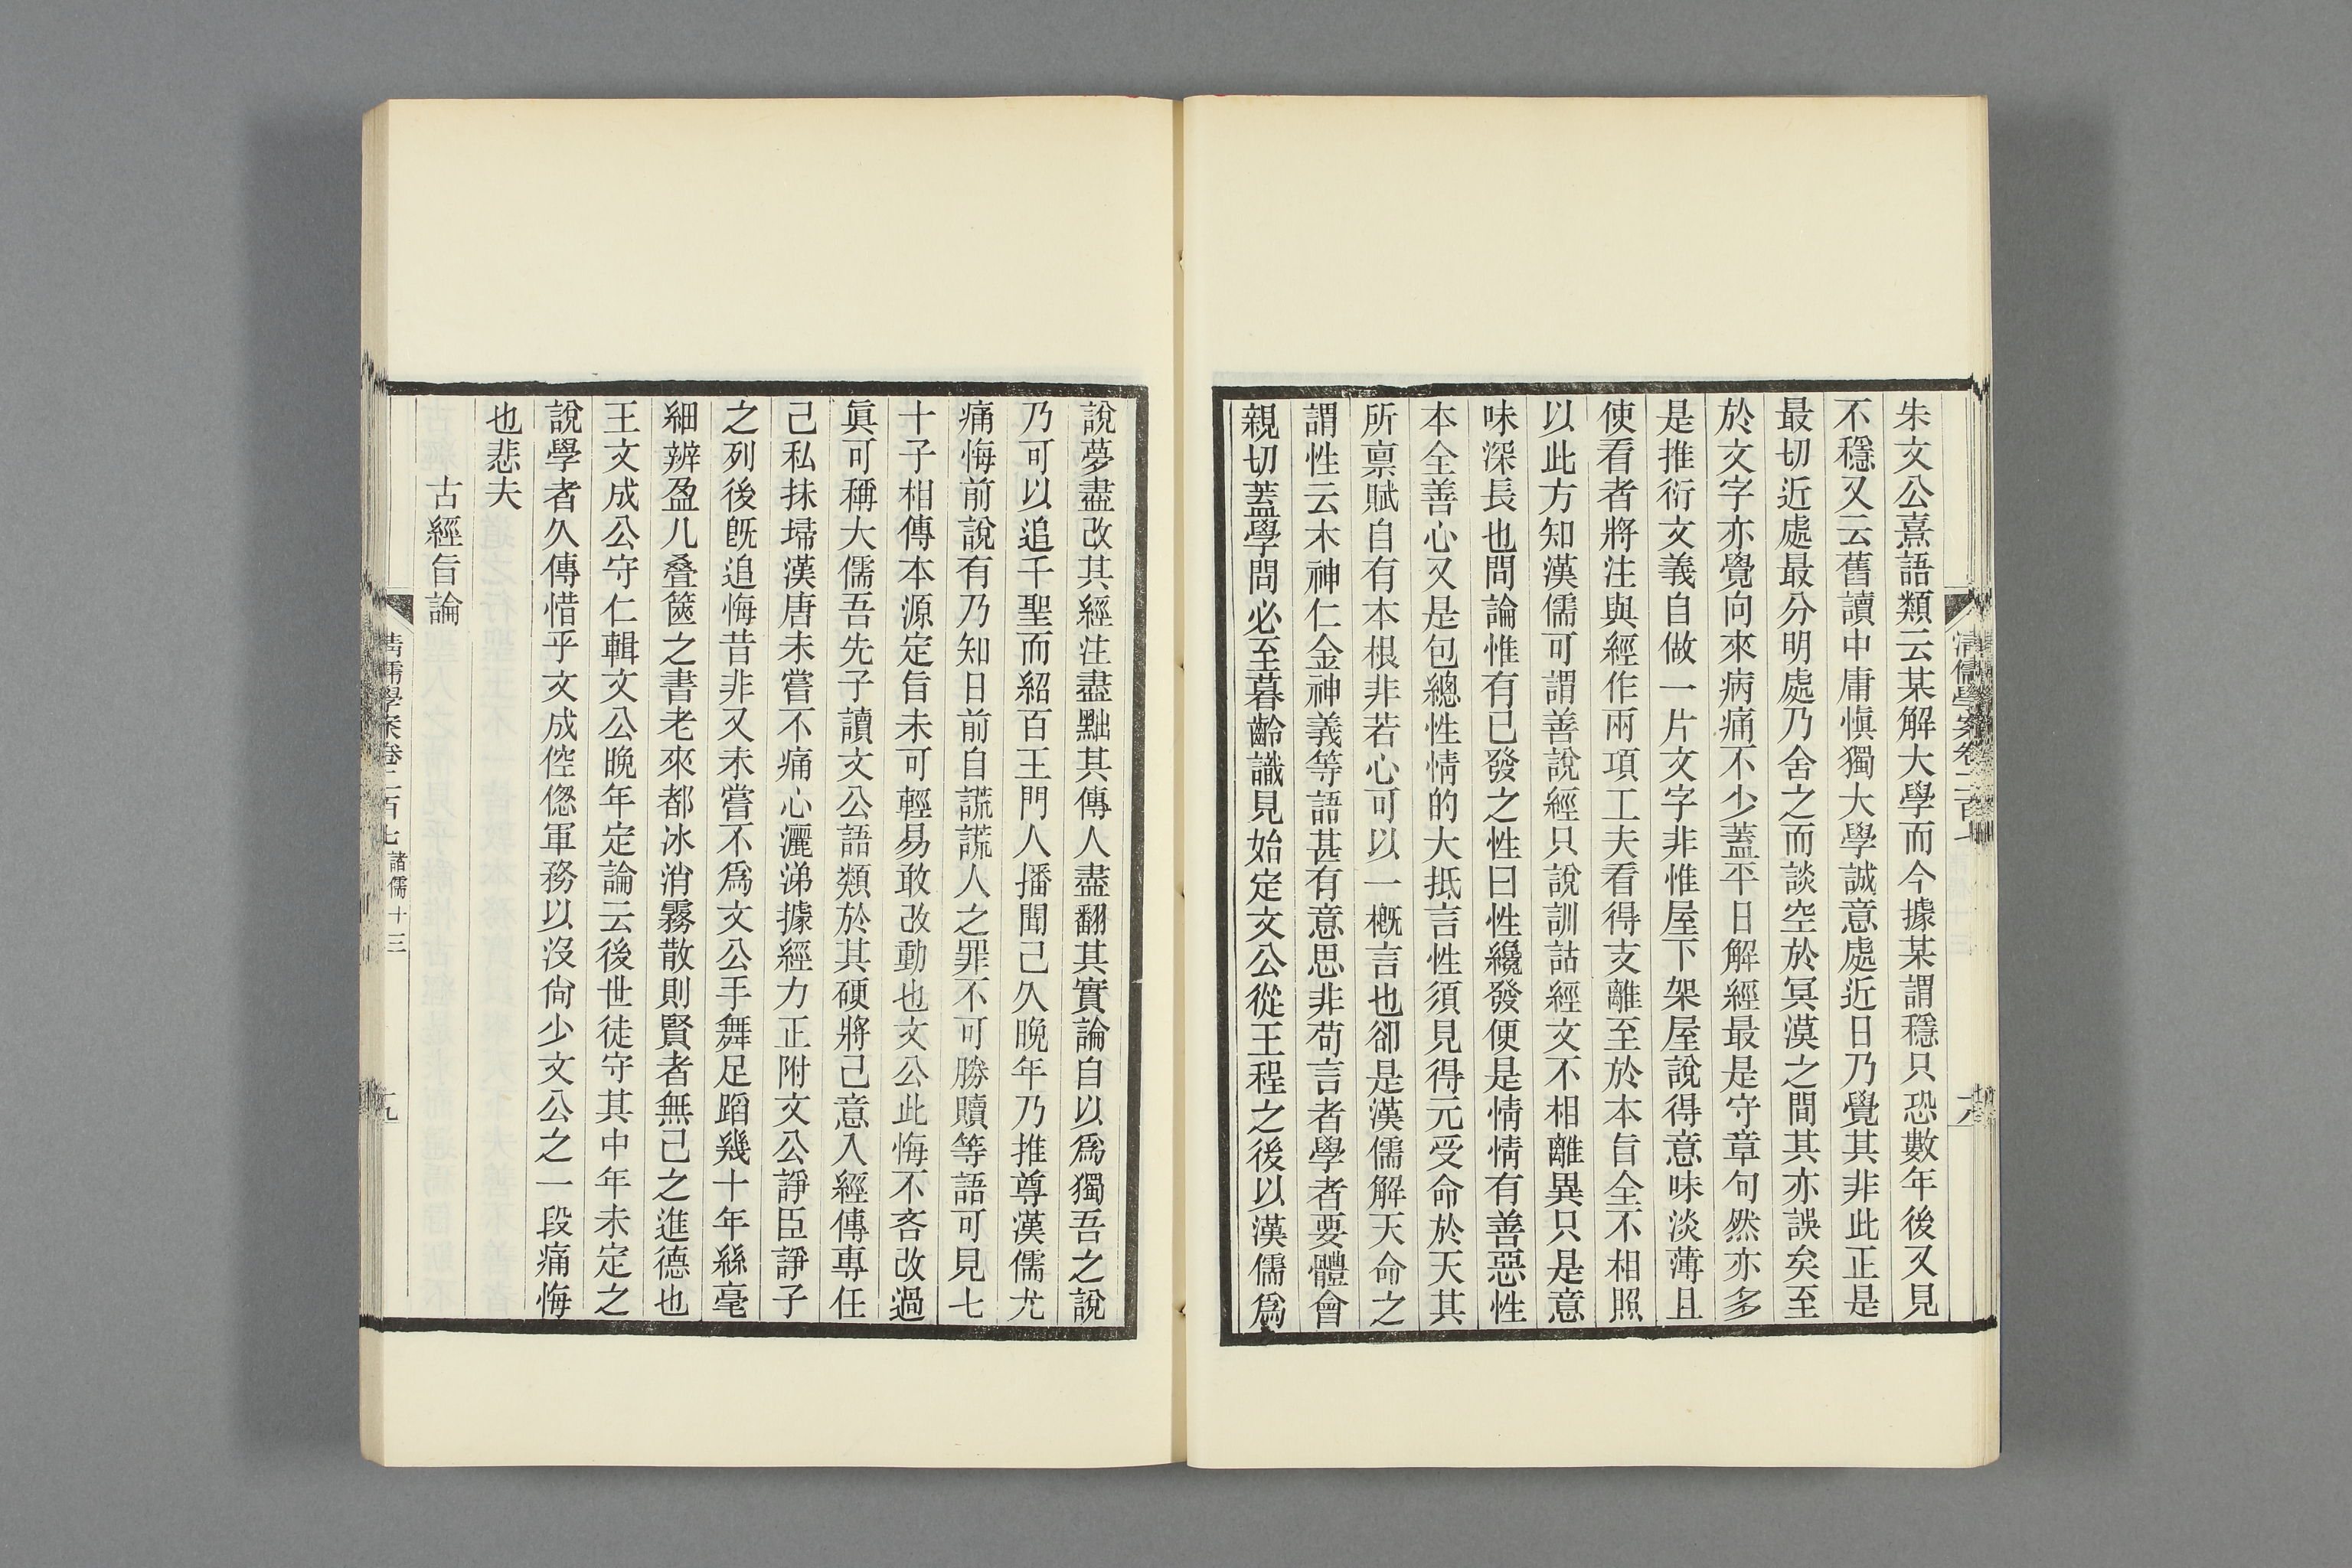 朱文公熹語類云某解大學而今據某謂穩只恐數年後又見
不穩又云舊讀中庸愼獨大學誠意處近日乃覺其非此正是
最切近處最分明處乃舍之而談空於冥漠之間其亦誤矣至
於文字亦覺向來病痛不少蓋平日解經最是守章句然亦多
是推衍文義自做一片文字非惟屋下架屋說得意味淡薄且
使看者將注與經作兩項工夫看得支離至於本旨全不相照
以此方知漢儒可謂善說經只說訓詁經文不相離異只是意
味深長也問論惟有已發之性曰性纔發便是情情有善惡性
本全善心又是包總性情的大抵言性須見得元受命於天其
所禀賦自有本根非若心可以一概言也卻是漢儒解天命之
謂性云木神仁金神義等語甚有意思非苟言者學者要體會
親切蓋學問必至暮齡識見始定文公從王程之後以漢儒爲
清儒學案卷二百七
說夢盡改其經注盡黜其傳人盡翻其實論自以爲獨吾之說
乃可以追千聖而紹百王門人播聞己久晚年乃推尊漢儒尤
痛悔前說有乃知日前自謊謊人之罪不可勝贖等語可見七
十子相傳本源定旨未可輕易敢改動也文公此悔不吝改過
眞可稱大儒吾先子讀文公語類於其硬將己意入經傳專任
己私抹埽漢唐未嘗不痛心灑涕據經力正附文公諍臣諍子
之列後旣追悔昔非又未嘗不爲文公手舞足蹈幾十年絲毫
細辨盈几叠篋之書老來都冰消霧散則賢者無己之進德也
王文成公守仁輯文公晚年定論云後世徒守其中年未定之
說學者久傳惜乎文成倥傯軍務以沒尙少文公之一段痛悔
也悲夫
古經旨論
清儒學案卷二百七 諸儒十三